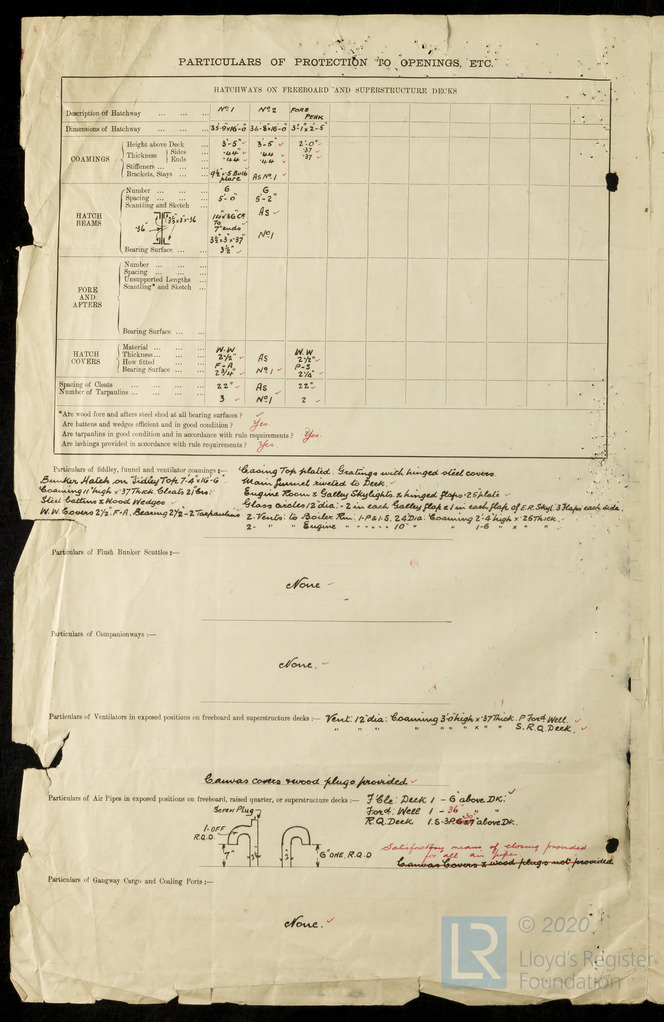 PARTICULARS OF PROTECTION TO OPENINGS, ETC.
HATCHWAYS ON FREEBOARD AND SUPERSTRUCTURE DECKS
Description of Hatchway ... ... ... No 1 No 2 FORE PEAK
Dimensions of Hatchway ... ... ... 35-9"x16-0 36-8"x16-0 3'-1"x2'-5"
COAMINGS
Height above Deck ... 3'-5" 3'-5" 2'-0"
Thickness { Sides ... .44" .44 .37
Ends ... .44 .44 .37
Stiffeners ... ... ...
Brackets, Stays ... ... 9½"x.5 Bulb plate As No 1
HATCH BEAMS
Number ... ... ... 6 6
Spacing ... ... ... 5'-0" 5'-2"
Scantling and Sketch ... 14"x36 To 7" ends As No 1
.36" 3½"x3"x.36
3½"x3"x.37"
Bearing Surface ... ... 3½"
FORE AND AFTERS
Number ... ... ...
Spacing ... ... ...
Unsupported Lengths ...
Scantling* and Sketch ...
Bearing Surface ... ...
HATCH COVERS
Material ... ... ... W.W W.W
Thickness ... ... ... 2½" As 2½"
How fitted ... ... F-A No 1 P-S
Bearing Surface ... ... 2¾" 2¼"
Spacing of Cleats ... ... ... ... 22" As 22"
Number of Tarpaulins ... ... ... ... 3 No 1 2
*Are wood fore and afters steel shod at all bearing surfaces ?
Are battens and wedges efficient and in good condition ? Yes
Are tarpaulins in good condition and in accordance with rule requirements ? Yes.
Are lashings provided in accordance with rule requirements ? Yes
Particulars of fiddley, funnel and ventilator coamings :— Casing Top plated. Gratings with hinged steel covers.
Bunker Hatch on Fidley Top. 7-4"x16-6" Main funnel riveted to Deck.
Coaming 11"high x .37 Thick. Cleats 21"Crs. Engine Room & Galley Skylights & hinged flaps .25 plate
Steel Battens & Wood Wedges Glass circles 12"dia:- 2 in each Galley flap & 1 in each flap of E.R. Skyl. 3 flaps each side.
W.W. Covers 2½" F-A. Bearing 2½"- 2 Tarpaulins 2. Vents: to Boiler Rm: 1-P & 1-S. 24"Dia: Coaming 2'-4"high x .26 Thick.
2- " " Engine " " " " " 10" " " 1-6 " x " "
Particulars of Flush Bunker Scuttles :—
None
Particulars of Companionways :—
None.
Particulars of Ventilators in exposed positions on freeboard and superstructure decks :— Vent: 12"dia: Coaming 3'0"high x .37 Thick. P Ford. Well.
" " " " " " x " " S. R.Q. Deck.
Canvas covers & wood plugs provided
Particulars of Air Pipes in exposed positions on freeboard, raised quarter, or superstructure decks :— F'Cle: Deck 1 - 6" above DK.
Ford: Well 1 - 36"
R.Q. Deck 1.S. 3P. 30" above DK.
Screw Plug
1. OFF R.Q.D.
7"
6" ONE. R.Q.D
Satisfactory means of closing provided for all air pipes
Canvas Covers & wood plugs not provided
Particulars of Gangway Cargo and Coaling Ports :—
None.
LR
© 2020
Lloyd's Register
Foundation